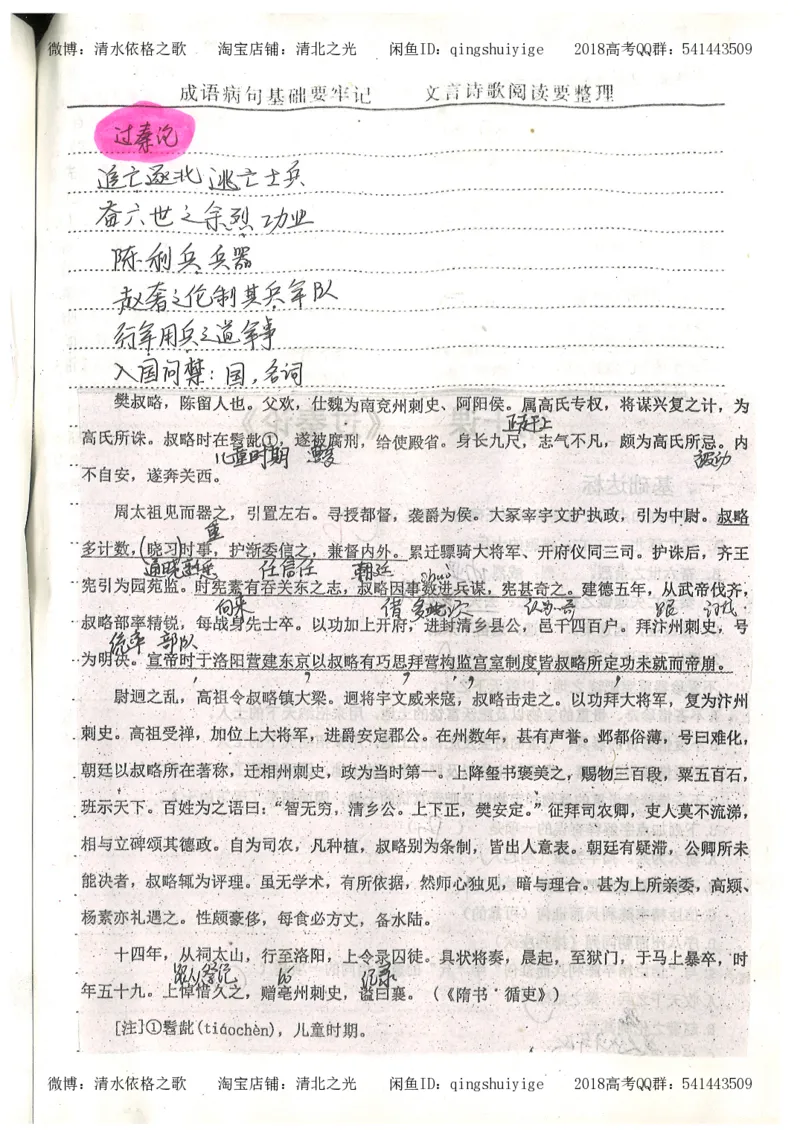 微博：清水依格之歌 淘宝店铺：清北之光 闲鱼ID：qingshuiyige 2018高考QQ群：541443509
成语病句基础要牢记 文言诗歌阅读要整理
过秦论
追亡逐北 逃亡士兵
奋六世之余烈 功业
陈利兵 兵器
赵奢之伦制其兵 军队
行军用兵之道 军事
入国问禁：国，名词
樊叔略，陈留人也。父欢，仕魏为南兖州刺史、阿阳侯。属高氏专权，将谋兴复之计，为
正赶上
高氏所诛。叔略时在髫龀①，遂被腐刑，给使殿省。身长九尺，志气不凡，颇为高氏所忌。内
儿童时期
不自安，遂奔关西。
周太祖见而器之，引置左右。寻授都督，袭爵为侯。大冢宰宇文护执政，引为中尉。叔略
重
多计数，晓习时事，护渐委信之，兼督内外。累迁骠骑大将军、开府仪同三司。护诛后，齐王
通晓 任信任 朝廷
宪引为园苑监。时宪素有吞关东之志，叔略因事数进兵谋，宪甚奇之。建德五年，从武帝伐齐，
向来 借 多次
叔略部率精锐，每战身先士卒。以功加上开府，进封清乡县公，邑千四百户。拜汴州刺史，号
统率 部队
为明决。宣帝时于洛阳营建东京以叔略有巧思拜营构监宫室制度皆叔略所定功未就而帝崩。
尉迥之乱，高祖令叔略镇大梁。迥将宇文威来寇，叔略击走之。以功拜大将军，复为汴州
刺史。高祖受禅，加位上大将军，进爵安定郡公。在州数年，甚有声誉。邺都俗薄，号曰难化，
朝廷以叔略所在著称，迁相州刺史，政为当时第一。上降玺书褒美之，赐物三百段，粟五百石，
班示天下。百姓为之语曰：“智无穷，清乡公。上下正，樊安定。”征拜司农卿，吏人莫不流涕，
相与立碑颂其德政。自为司农，凡种植，叔略别为条制，皆出人意表。朝廷有疑滞，公卿所未
能决者，叔略辄为评理。虽无学术，有所依据，然师心独见，暗与理合。甚为上所亲委，高颎、
杨素亦礼遇之。性颇豪侈，每食必方丈，备水陆。
十四年，从祠太山，行至洛阳，上令录囚徒。具状将奏，晨起，至狱门，于马上暴卒，时
年五十九。上悼惜久之，赠亳州刺史，谥曰襄。（《隋书·循吏》）
[注]①髫龀(tiáochèn)，儿童时期。
微博：清水依格之歌 淘宝店铺：清北之光 闲鱼ID：qingshuiyige 2018高考QQ群：541443509